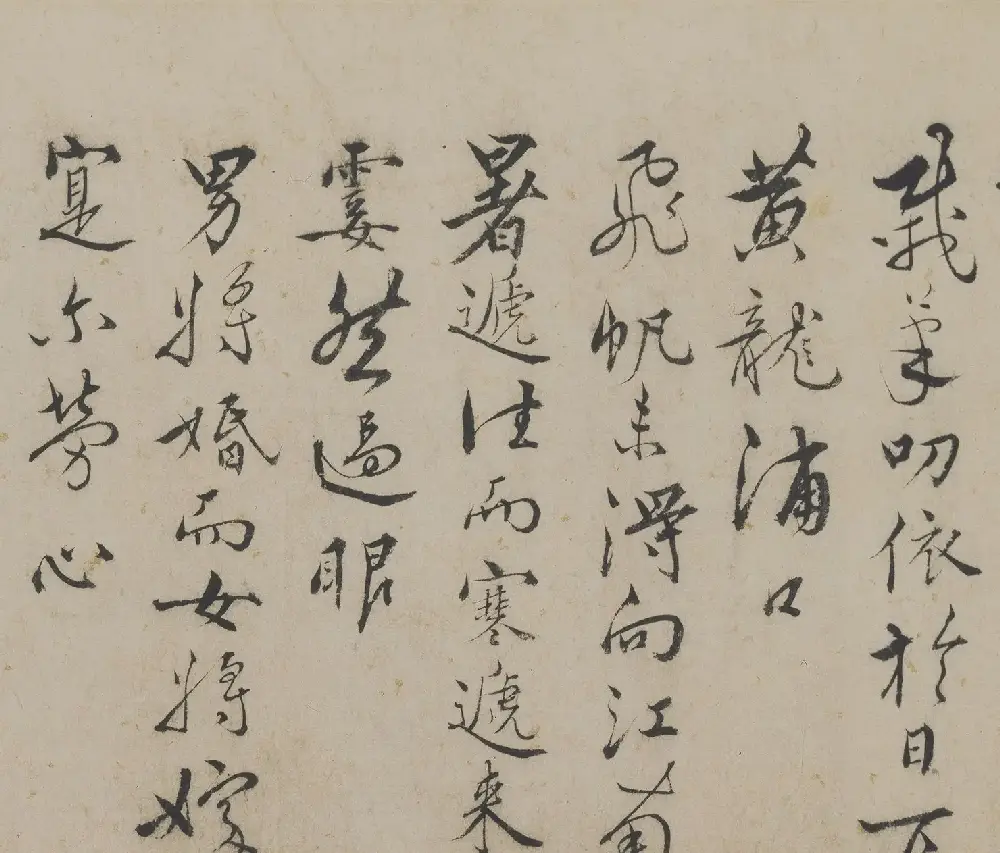 載筆叨依於日下
黃龍浦口
飛帆未得向江南
暑遞往而寒遞来
霎然過眼
男將婚而女將嫁
寔尔勞心